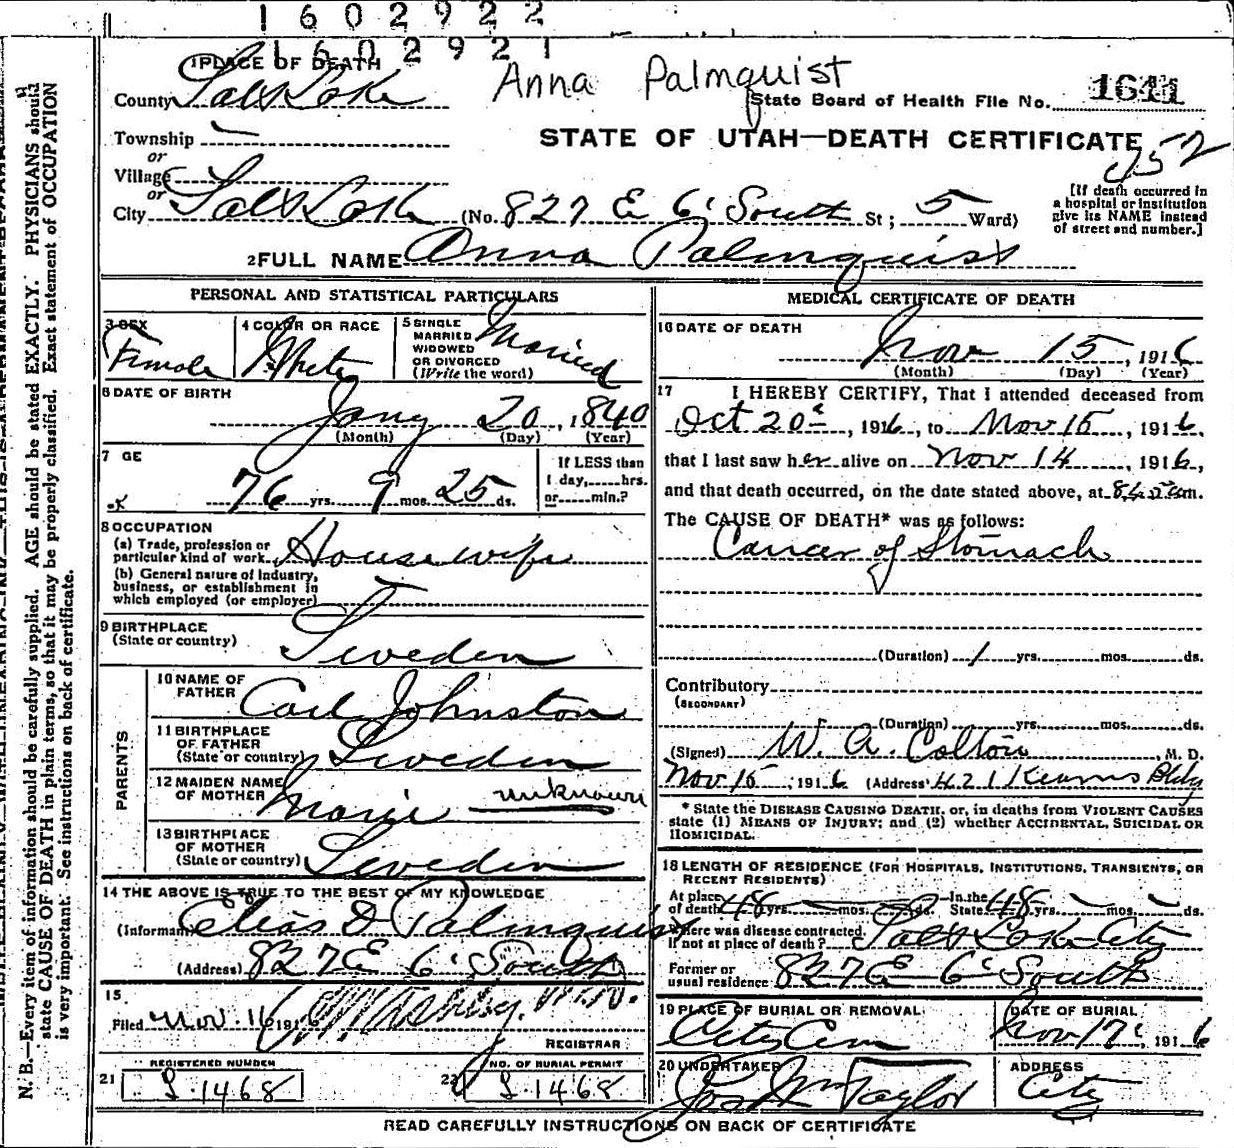 1602922
1602921
1 PLACE OF DEATH
Anna Palmquist
County Salt Lake
State Board of Health File No. 1641
Township —
STATE OF UTAH—DEATH CERTIFICATE
or
Village
or
City Salt Lake (No. 827 E 6' South St; 5 Ward)
[If death occurred in
a hospital or institution
give its NAME instead
of street and number.]
2 FULL NAME Anna Palmquist
PERSONAL AND STATISTICAL PARTICULARS
3 SEX Female
4 COLOR OR RACE White
5 SINGLE
MARRIED
WIDOWED
OR DIVORCED
(Write the word) Married
6 DATE OF BIRTH
Jany 20, 1840
(Month) (Day) (Year)
7 GE
76 yrs. 9 mos. 25 ds.
If LESS than
1 day, hrs.
or min.?
8 OCCUPATION
(a) Trade, profession or
particular kind of work Housewife
(b) General nature of industry,
business, or establishment in
which employed (or employer)
9 BIRTHPLACE
(State or country) Sweden
PARENTS
10 NAME OF
FATHER Carl Johnston
11 BIRTHPLACE
OF FATHER
(State or country) Sweden
12 MAIDEN NAME
OF MOTHER Marie unknown
13 BIRTHPLACE
OF MOTHER
(State or country) Sweden
14 THE ABOVE IS TRUE TO THE BEST OF MY KNOWLEDGE
(Informant Elias D Palmquist
(Address) 827 E 6' South
15
Filed Nov. 16 1916
REGISTRAR
REGISTERED NUMBER
21 L.1468
NO. OF BURIAL PERMIT
22 L.1468
MEDICAL CERTIFICATE OF DEATH
16 DATE OF DEATH
Nov 15, 1916
(Month) (Day) (Year)
17 I HEREBY CERTIFY, That I attended deceased from
Oct 20, 1916, to Nov 15, 1916,
that I last saw her alive on Nov 14, 1916,
and that death occurred, on the date stated above, at 8 45 am.
The CAUSE OF DEATH* was as follows:
Cancer of Stomach
(Duration) 1 yrs. mos. ds.
Contributory
(SECONDARY)
(Duration) yrs. mos. ds.
(Signed) W. A. Colton M. D.
Nov 15, 1916 (Address 421 Kearns Bldg
* State the DISEASE CAUSING DEATH, or, in deaths from VIOLENT CAUSES
state (1) MEANS OF INJURY; and (2) whether ACCIDENTAL, SUICIDAL OR
HOMICIDAL.
18 LENGTH OF RESIDENCE (FOR HOSPITALS, INSTITUTIONS, TRANSIENTS, OR
RECENT RESIDENTS)
At place
of death 48 yrs. mos. ds. In the
State 48 yrs. mos. ds.
Where was disease contracted,
if not at place of death? Salt Lake City
Former or
usual residence 827 E 6' South
19 PLACE OF BURIAL OR REMOVAL
City Cem
DATE OF BURIAL
Nov 17, 1916
20 UNDERTAKER
Jos Wm Taylor
ADDRESS
City
READ CAREFULLY INSTRUCTIONS ON BACK OF CERTIFICATE
N. B.—Every item of information should be carefully supplied. AGE should be stated EXACTLY. PHYSICIANS should
state CAUSE OF DEATH in plain terms, so that it may be properly classified. Exact statement of OCCUPATION
is very important. See instructions on back of certificate.